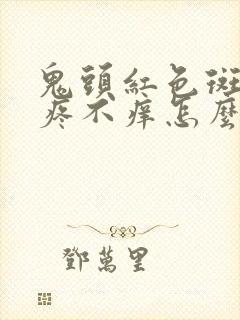 鬼頭紅色斑
疼不癢怎麼
鄧萬里